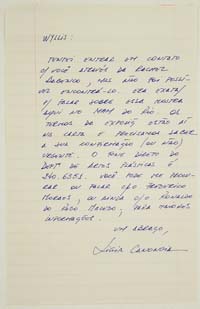 WYLLIS:
TENTEI ENTRAR EM CONTATO
C/ VOCÊ ATRAVÉS DA RACHEL
MAS NÃO FOI POSSÍ-
VEL ENCONTRÁ-LO. ERA EXATA/
P/ FALAR SOBRE ESSA MOSTRA
AQUI NO MAM DO RIO. OS
TERMOS DA EXPOSIÇÃO ESTÃO AÍ
NA CARTA E PRECISAMOS SABER
A SUA CONFIRMAÇÃO (OU NÃO)
URGENTE. O FONE DIRETO DO
DEPTº DE ARTES PLÁSTICAS É
240.6351. VOCÊ PODE ME PROCU-
RAR OU FALAR C/O FREDERICO
MORAES, OU AINDA C/O RONALDO
DO REGO MACEDO, PARA MAIORES
INFORMAÇÕES.
UM ABRAÇO,
Ligia Canongia